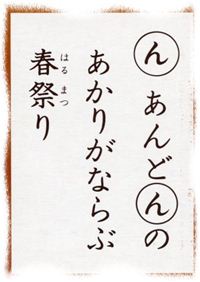 ん あんどんの
あかりがならぶ
春祭り
はるまつ